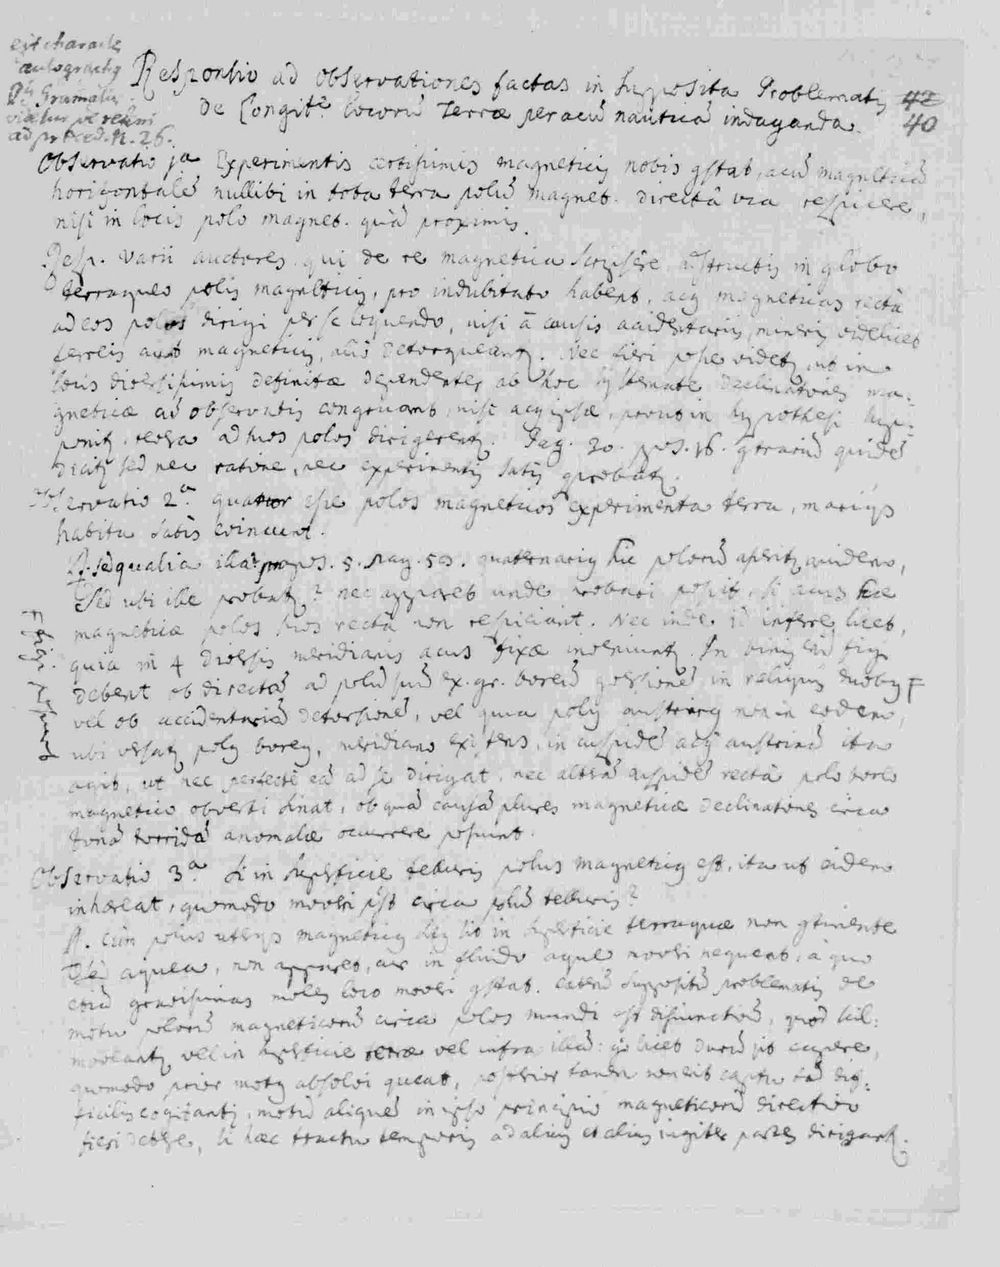 est charact.
autographus
P. Gramatici
videtur pertinere
ad praeced. N. 26.
Responsio ad observationes factas in supposita Problematis
De Longit.e locorū Terræ per acū nauticā indaganda.
42
40
Observatio 1a Experimentis certissimis magneticis nobis gstat, acū magneticā
horizontalē nullibi in tota terra polū magnet. directâ via respicere,
nisi in locis polo magnet. quā proximis.
Resp. Varii auctores qui de re magnetica scripsēre, astructis in globo
terraqueo polis magneticis, pro indubitato habent, acus magneticas rectà
ad eos polos dirigi per se loquendo, nisi â causis accidentariis, mineris videlicet
ferreis aut magneticis, aliò detorqueantur. Nec fieri posse videtur, ut in
locis diversissimis definitæ dependenter ab hoc systemate Declinationes ma-
gneticæ ad observatas congruant, nisi acus ipsæ, prout in hypothesi supp-
ponitur, reversa ad suos polos dirigerentur. Pag. 20. pos. 16. gtrariū quidē
dicitur sed nec ratione, nec experimentis satis gprobatur.
Observatio 2a. quatuor esse polos magneticos experimenta terra, mariqs
habita satis evincunt.
R. sed qualia illa? propos. 5. pag. 50. quaternarius hic polorū asseritur quidem,
sed ubi ille probatur? nec apparet unde probari possit, si acus hæ
magneticæ polos suos rectà non respiciant. Nec inde id inferre licet,
quia in 4 diversis meridianis acus fixæ inveniuntur. In binis enī figi
debent ob directā ad polū suū ex. gr. boreū gversionē, in reliquis duobus F
vel ob accidentariā detorsionē, vel quia polus austrinus non in eodem,
ubi versatur polus boreus, meridiano existens, in cuspidē acus austrinā ita
agit, ut nec perfectè eā ad se dirigat, nec alterā cuspidē rectà polo boreo
magnetico obverti sinat, ob quā causā plures magneticæ declinationes circa
zonā torridā anomalæ ocurrere possunt.
Observatio 3a. Si in superficie telluris polus magneticus est, ita ut eidem
inhæreat, quomodo moveri pōt circa polū telluris?
R. Cùm polus uterqs magneticus sit in superficie terraquæ non gtinente
sed aquea, non apparet, cur in fluido aquæ moveri nequeat, à quo
etiā gravissimas moles loco moveri gstat. Cæterū suppositū problematis de
motu polorū magneticorū circa polos mundi est disjunctivū, quod scil:
moveantur vel in superficie terræ vel infra illā: et licet durū sit capere,
quomodo prior motus absolvi queat, posterior tamen non erit captu tā dif-
ficilis cogitanti, motū aliquē in ipso principio magneticorū directivo
fieri debere, si hæc tractu temporis ad alias et alias jugiter partes dirigantur.